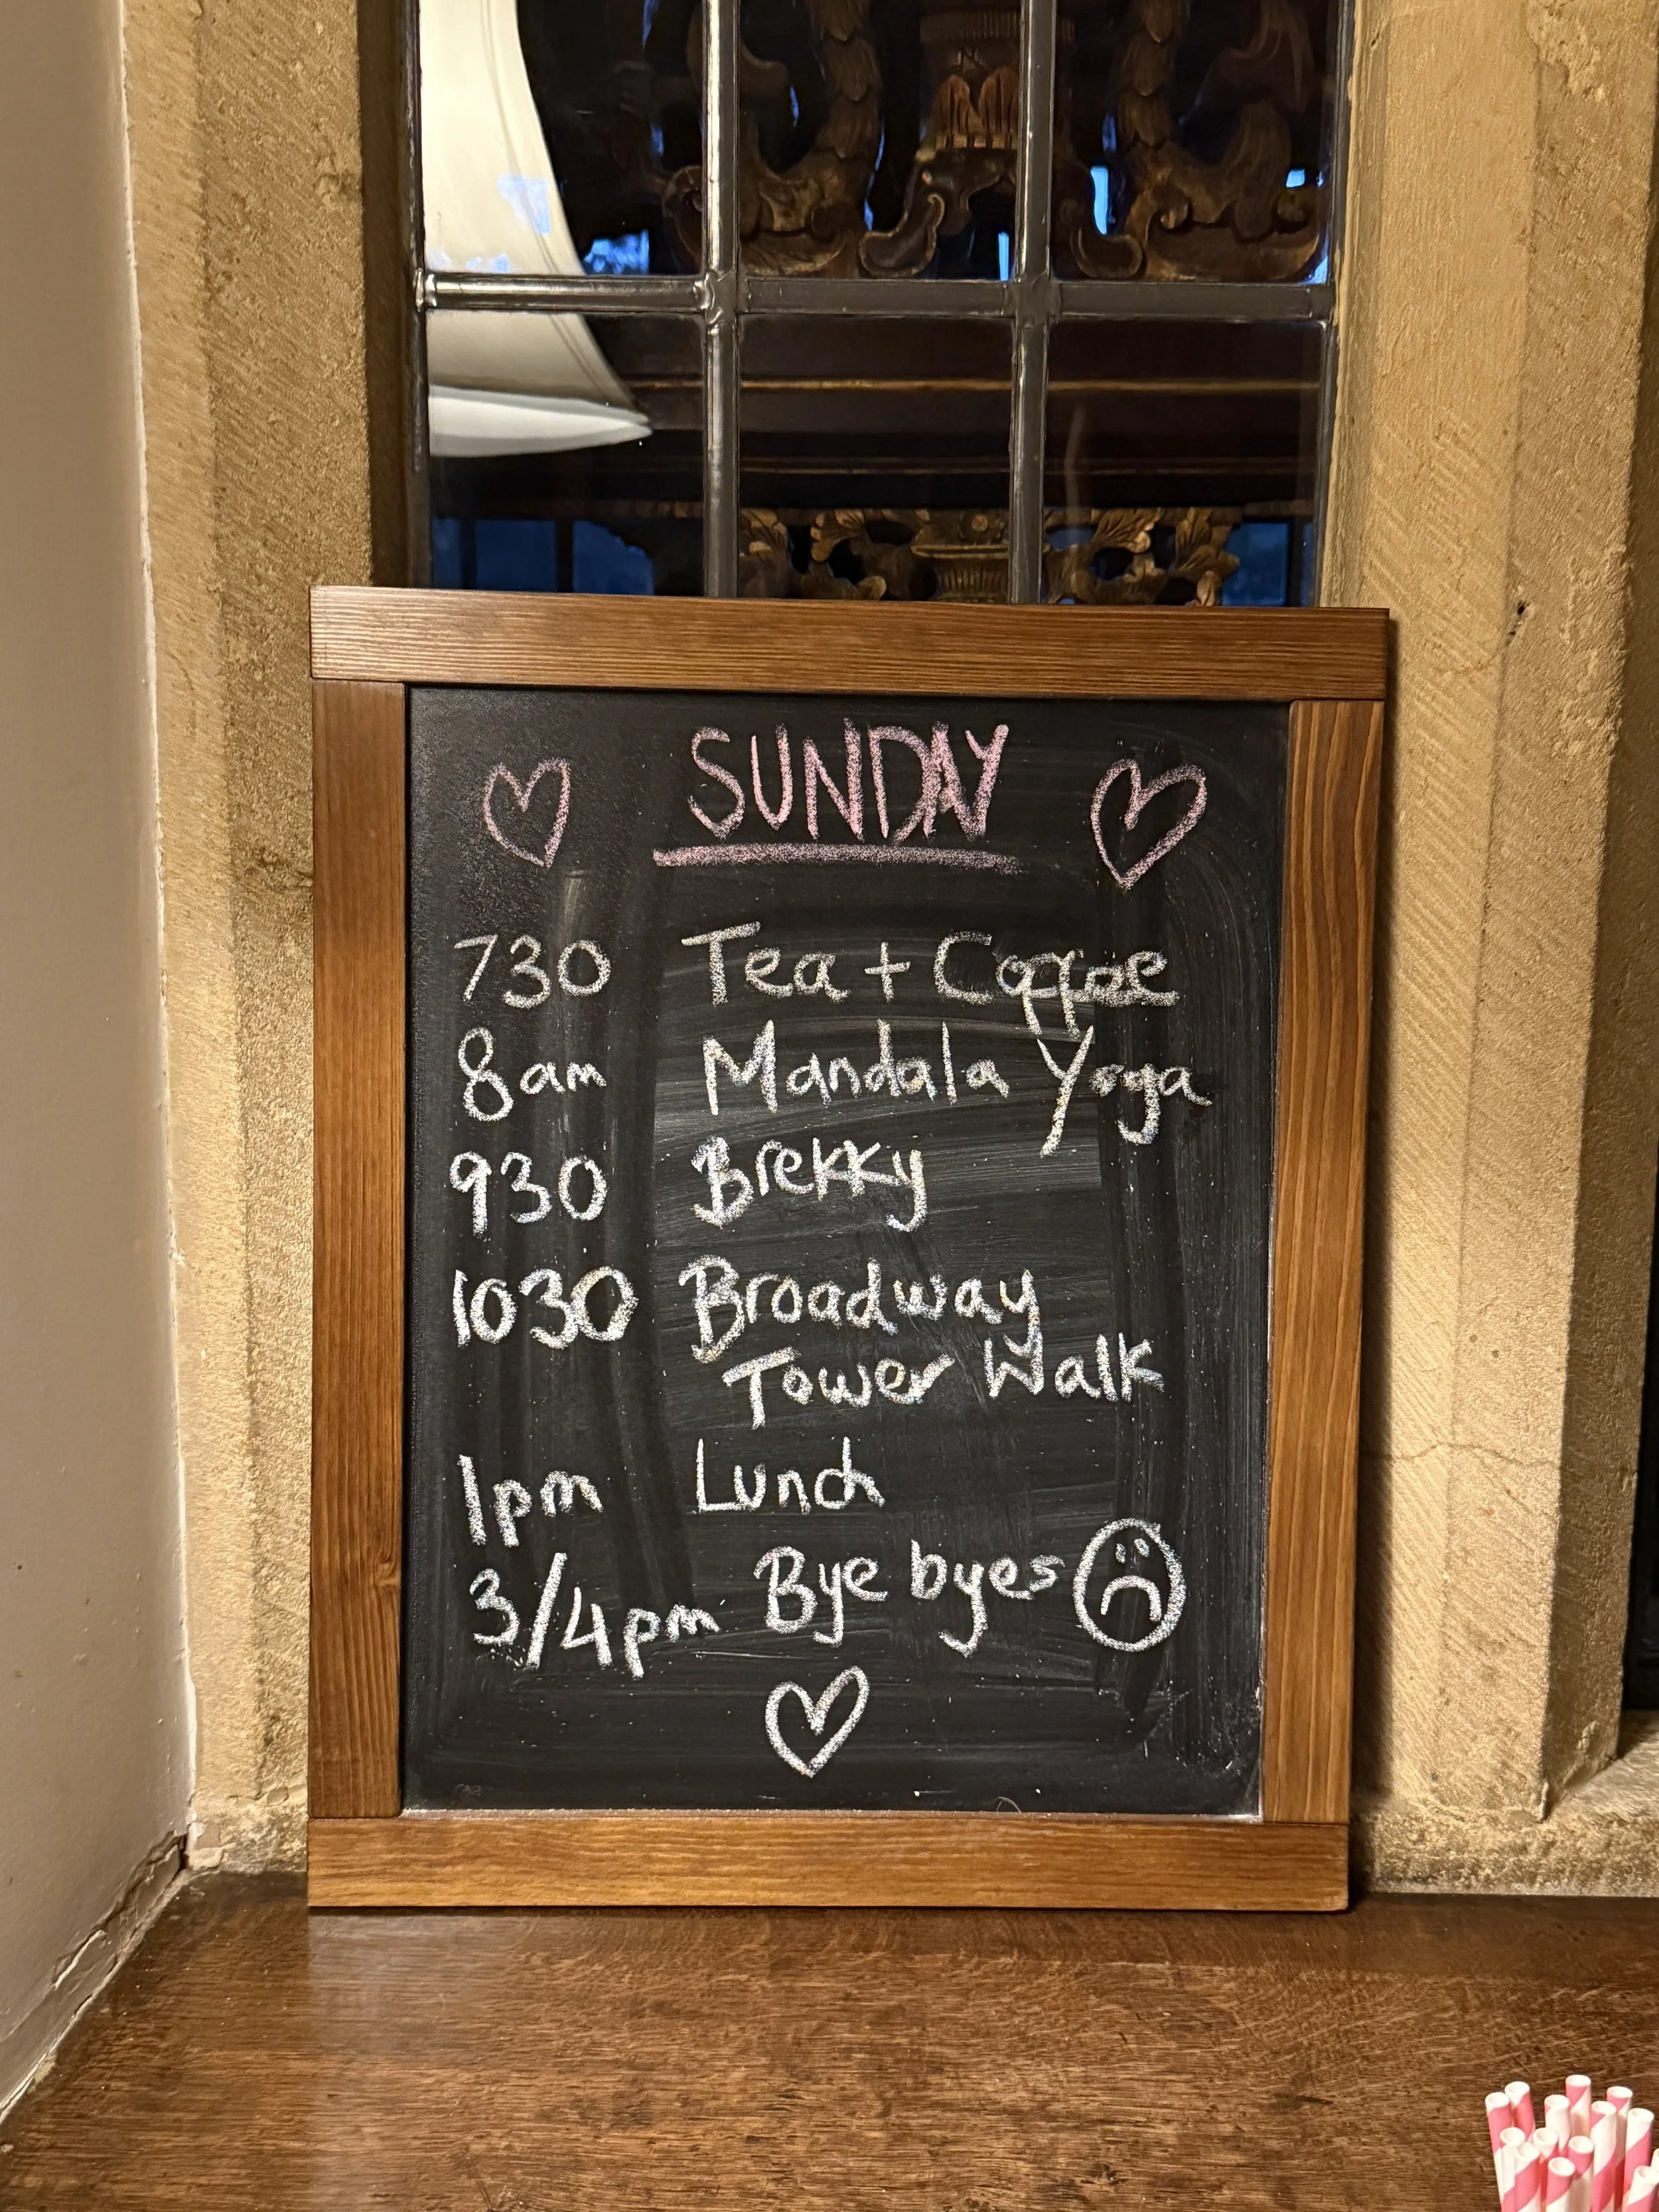 SUNDAY
730 Tea + Coffee
8am Mandala Yoga
930 Brekky
1030 Broadway
Tower Walk
1pm Lunch
3/4pm Bye byes